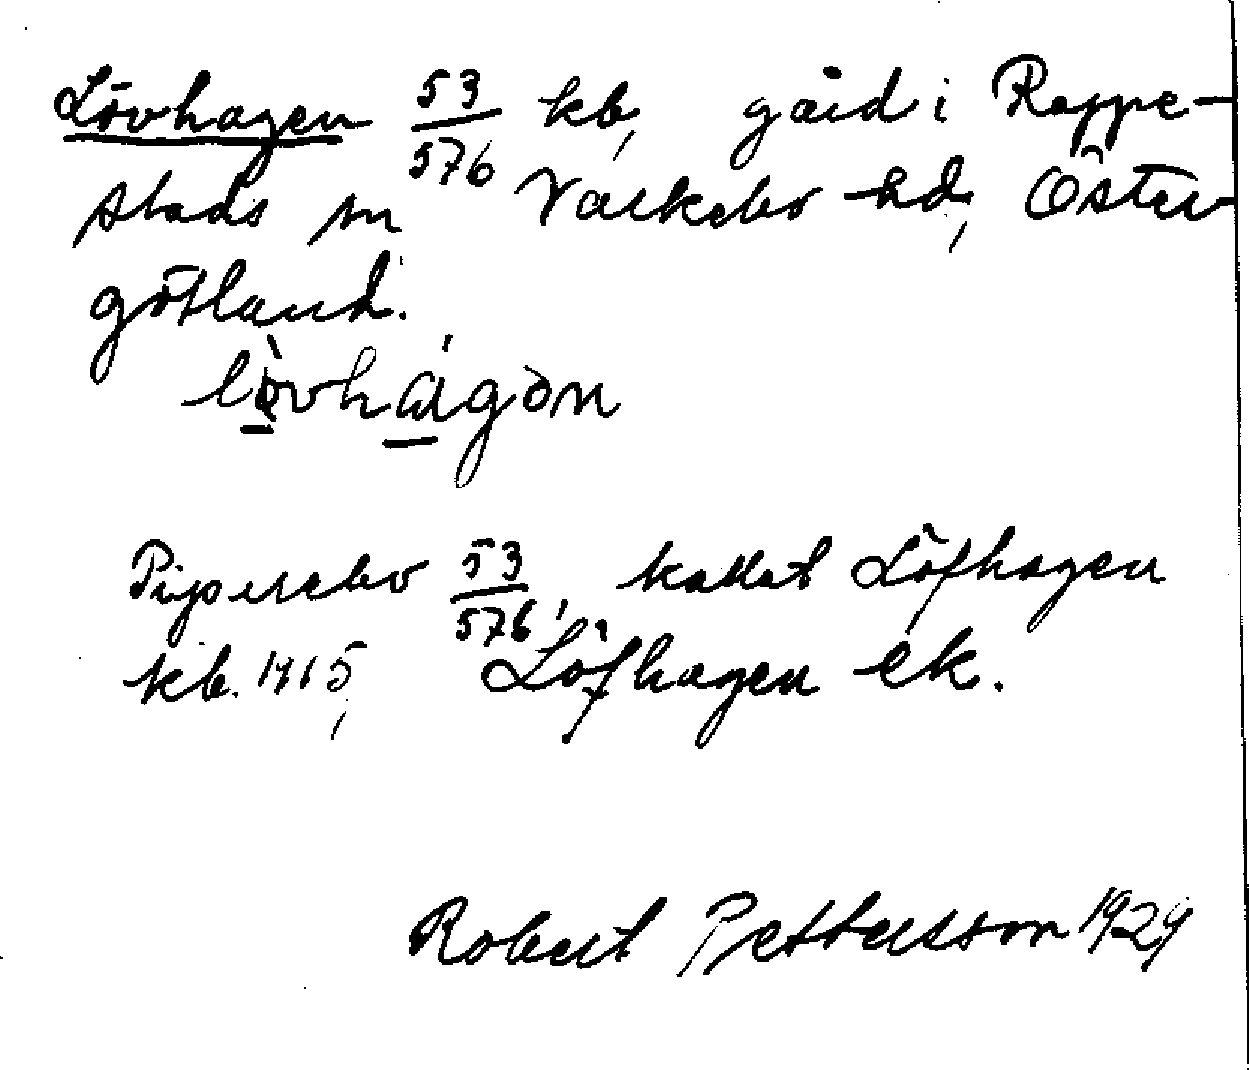 Lövhagen 53/576 kb, gård i Rappe-
stads sn Valkebo hd, Öster-
götland.
lòvhágən
Pipersbo 53/576, kallat Löfhagen
kb. 1915, Löfhagen ek.
Robert Pettersson 1929